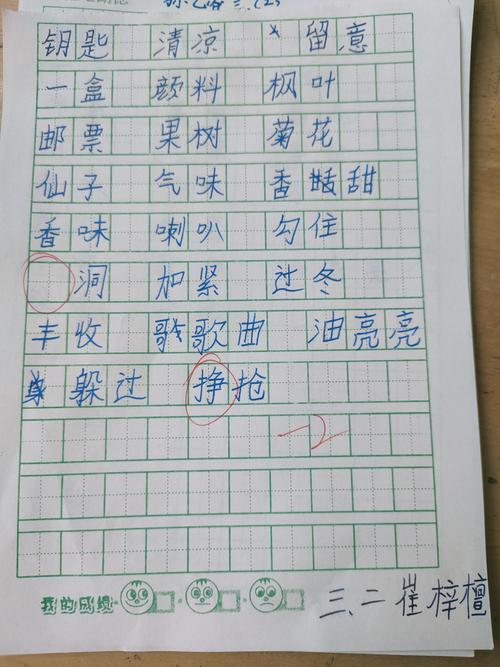 钥匙 清凉 留意
一盒 颜料 枫叶
邮票 果树 菊花
仙子 气味 香甜
香味 喇叭 勾住
洞 加紧 过冬
丰收 歌曲 油亮亮
躲过 挣抢
-2
我的成绩
三、二 崔梓檀